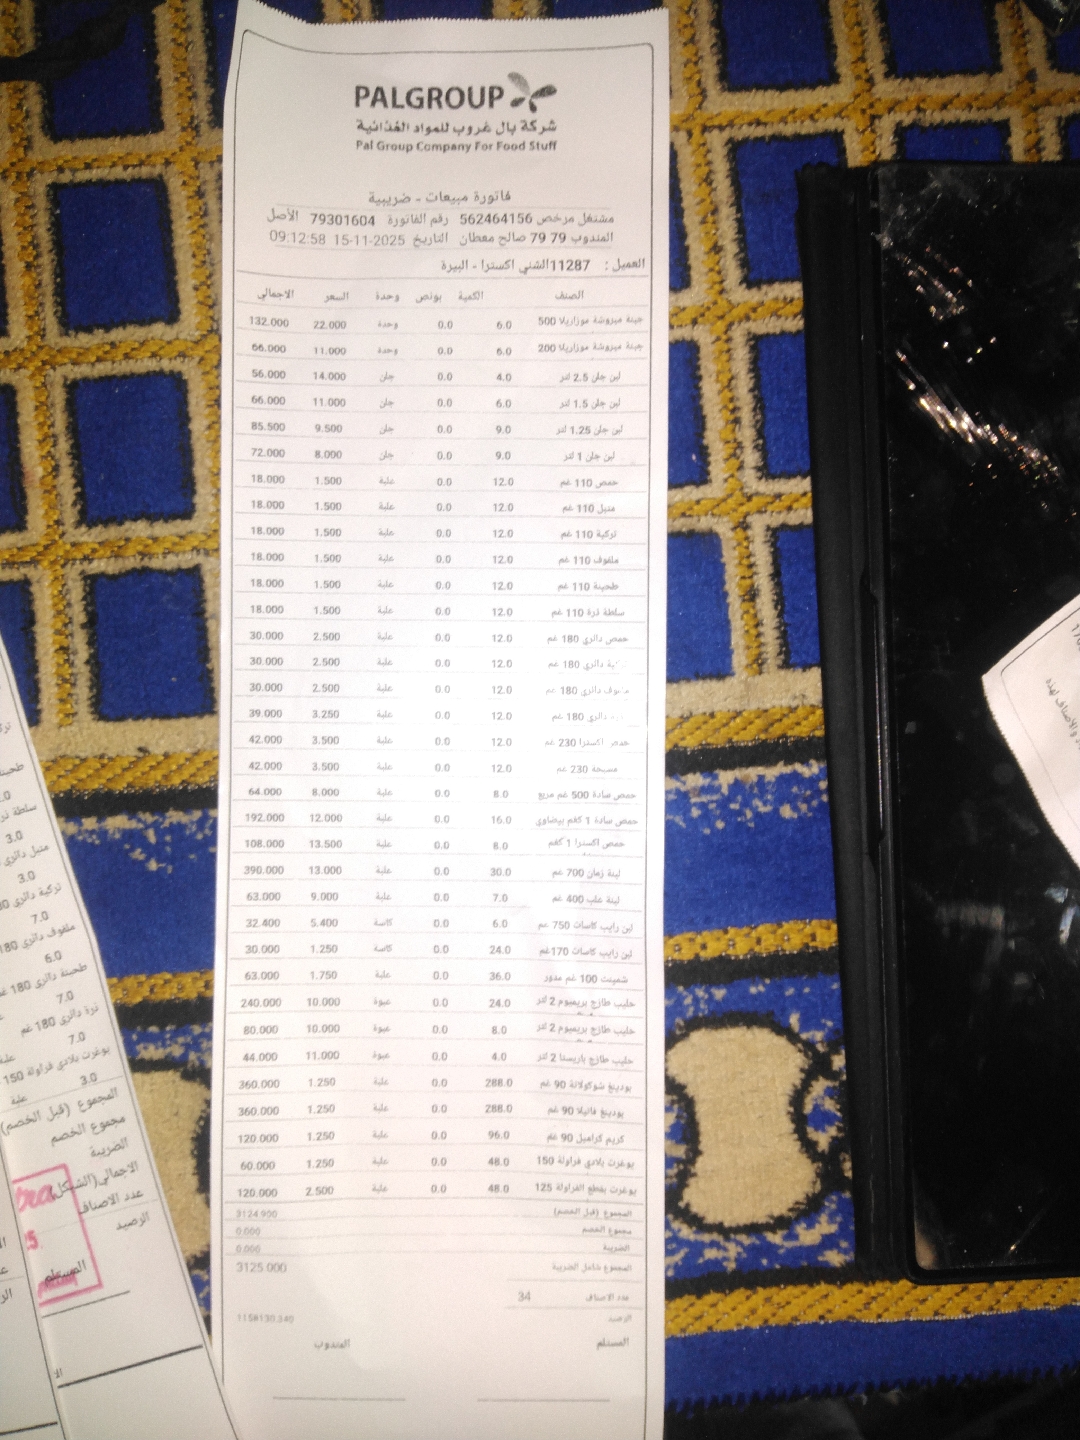 PALGROUP
شركة بال غروب للمواد الغذائية
Pal Group Company For Food Stuff
فاتورة مبيعات - ضريبية
مشتغل مرخص 562464156 رقم الفاتورة 79301604 الأصل
المندوب 79 79 صالح معطان التاريخ 15-11-2025 09:12:58
العميل : 11287الشني اكسترا - البيرة
الصنف الكمية بونص وحدة السعر الاجمالي
جبنة مبروشة موزاريلا 500 6.0 0.0 وحدة 22.000 132.000
جبنة مبروشة موزاريلا 200 6.0 0.0 وحدة 11.000 66.000
لبن جلن 2.5 لتر 4.0 0.0 جلن 14.000 56.000
لبن جلن 1.5 لتر 6.0 0.0 جلن 11.000 66.000
لبن جلن 1.25 لتر 9.0 0.0 جلن 9.500 85.500
لبن جلن 1 لتر 9.0 0.0 جلن 8.000 72.000
حمص 110 غم 12.0 0.0 علبة 1.500 18.000
متبل 110 غم 12.0 0.0 علبة 1.500 18.000
تركية 110 غم 12.0 0.0 علبة 1.500 18.000
ملفوف 110 غم 12.0 0.0 علبة 1.500 18.000
طحينة 110 غم 12.0 0.0 علبة 1.500 18.000
سلطة ذرة 110 غم 12.0 0.0 علبة 1.500 18.000
حمص دائري 180 غم 12.0 0.0 علبة 2.500 30.000
دائري 180 غم 12.0 0.0 علبة 2.500 30.000
دائري 180 غم 12.0 0.0 علبة 2.500 30.000
دائري 180 غم 12.0 0.0 علبة 3.250 39.000
حمص اكسترا 230 غم 12.0 0.0 علبة 3.500 42.000
مسبحة 230 غم 12.0 0.0 علبة 3.500 42.000
حمص سادة 500 غم مربع 8.0 0.0 علبة 8.000 64.000
حمص سادة 1 كغم بيضاوي 16.0 0.0 علبة 12.000 192.000
حمص اكسترا 1 كغم 8.0 0.0 علبة 13.500 108.000
لبنة زمان 700 غم 30.0 0.0 علبة 13.000 390.000
لبنة علب 400 غم 7.0 0.0 علبة 9.000 63.000
لبن رايب كاسات 750 غم 6.0 0.0 كاسة 5.400 32.400
لبن رايب كاسات 170غم 24.0 0.0 كاسة 1.250 30.000
شمينت 100 غم مدور 36.0 0.0 علبة 1.750 63.000
حليب طازج بريميوم 2 لتر 24.0 0.0 عبوة 10.000 240.000
حليب طازج بريميوم 2 لتر 8.0 0.0 عبوة 10.000 80.000
حليب طازج باريستا 2 لتر 4.0 0.0 عبوة 11.000 44.000
بودينغ شوكولاتة 90 غم 288.0 0.0 علبة 1.250 360.000
بودينغ فانيلا 90 غم 288.0 0.0 علبة 1.250 360.000
كريم كراميل 90 غم 96.0 0.0 علبة 1.250 120.000
يوغرت بلادي فراولة 150 48.0 0.0 علبة 1.250 60.000
يوغرت بقطع الفراولة 125 48.0 0.0 علبة 2.500 120.000
المجموع (قبل الخصم) 3124.900
مجموع الخصم 0.000
الضريبة 0.000
المجموع شامل الضريبة 3125.000
عدد الاصناف 34
الرصيد 1158130.340
المستلم المندوب
طحينة
سلطة ذر
3.0
متبل دائري
3.0
تركية دائري
7.0
ملفوف دائري 180
6.0
طحينة دائري 180 غم
7.0
ذرة دائري 180 غم
7.0 علبة
يوغرت بلادي فراولة 150
3.0 علبة
المجموع (قبل الخصم)
مجموع الخصم
الضريبة
الاجمالي(الشيكل)
عدد الاصناف
الرصيد
المستلم